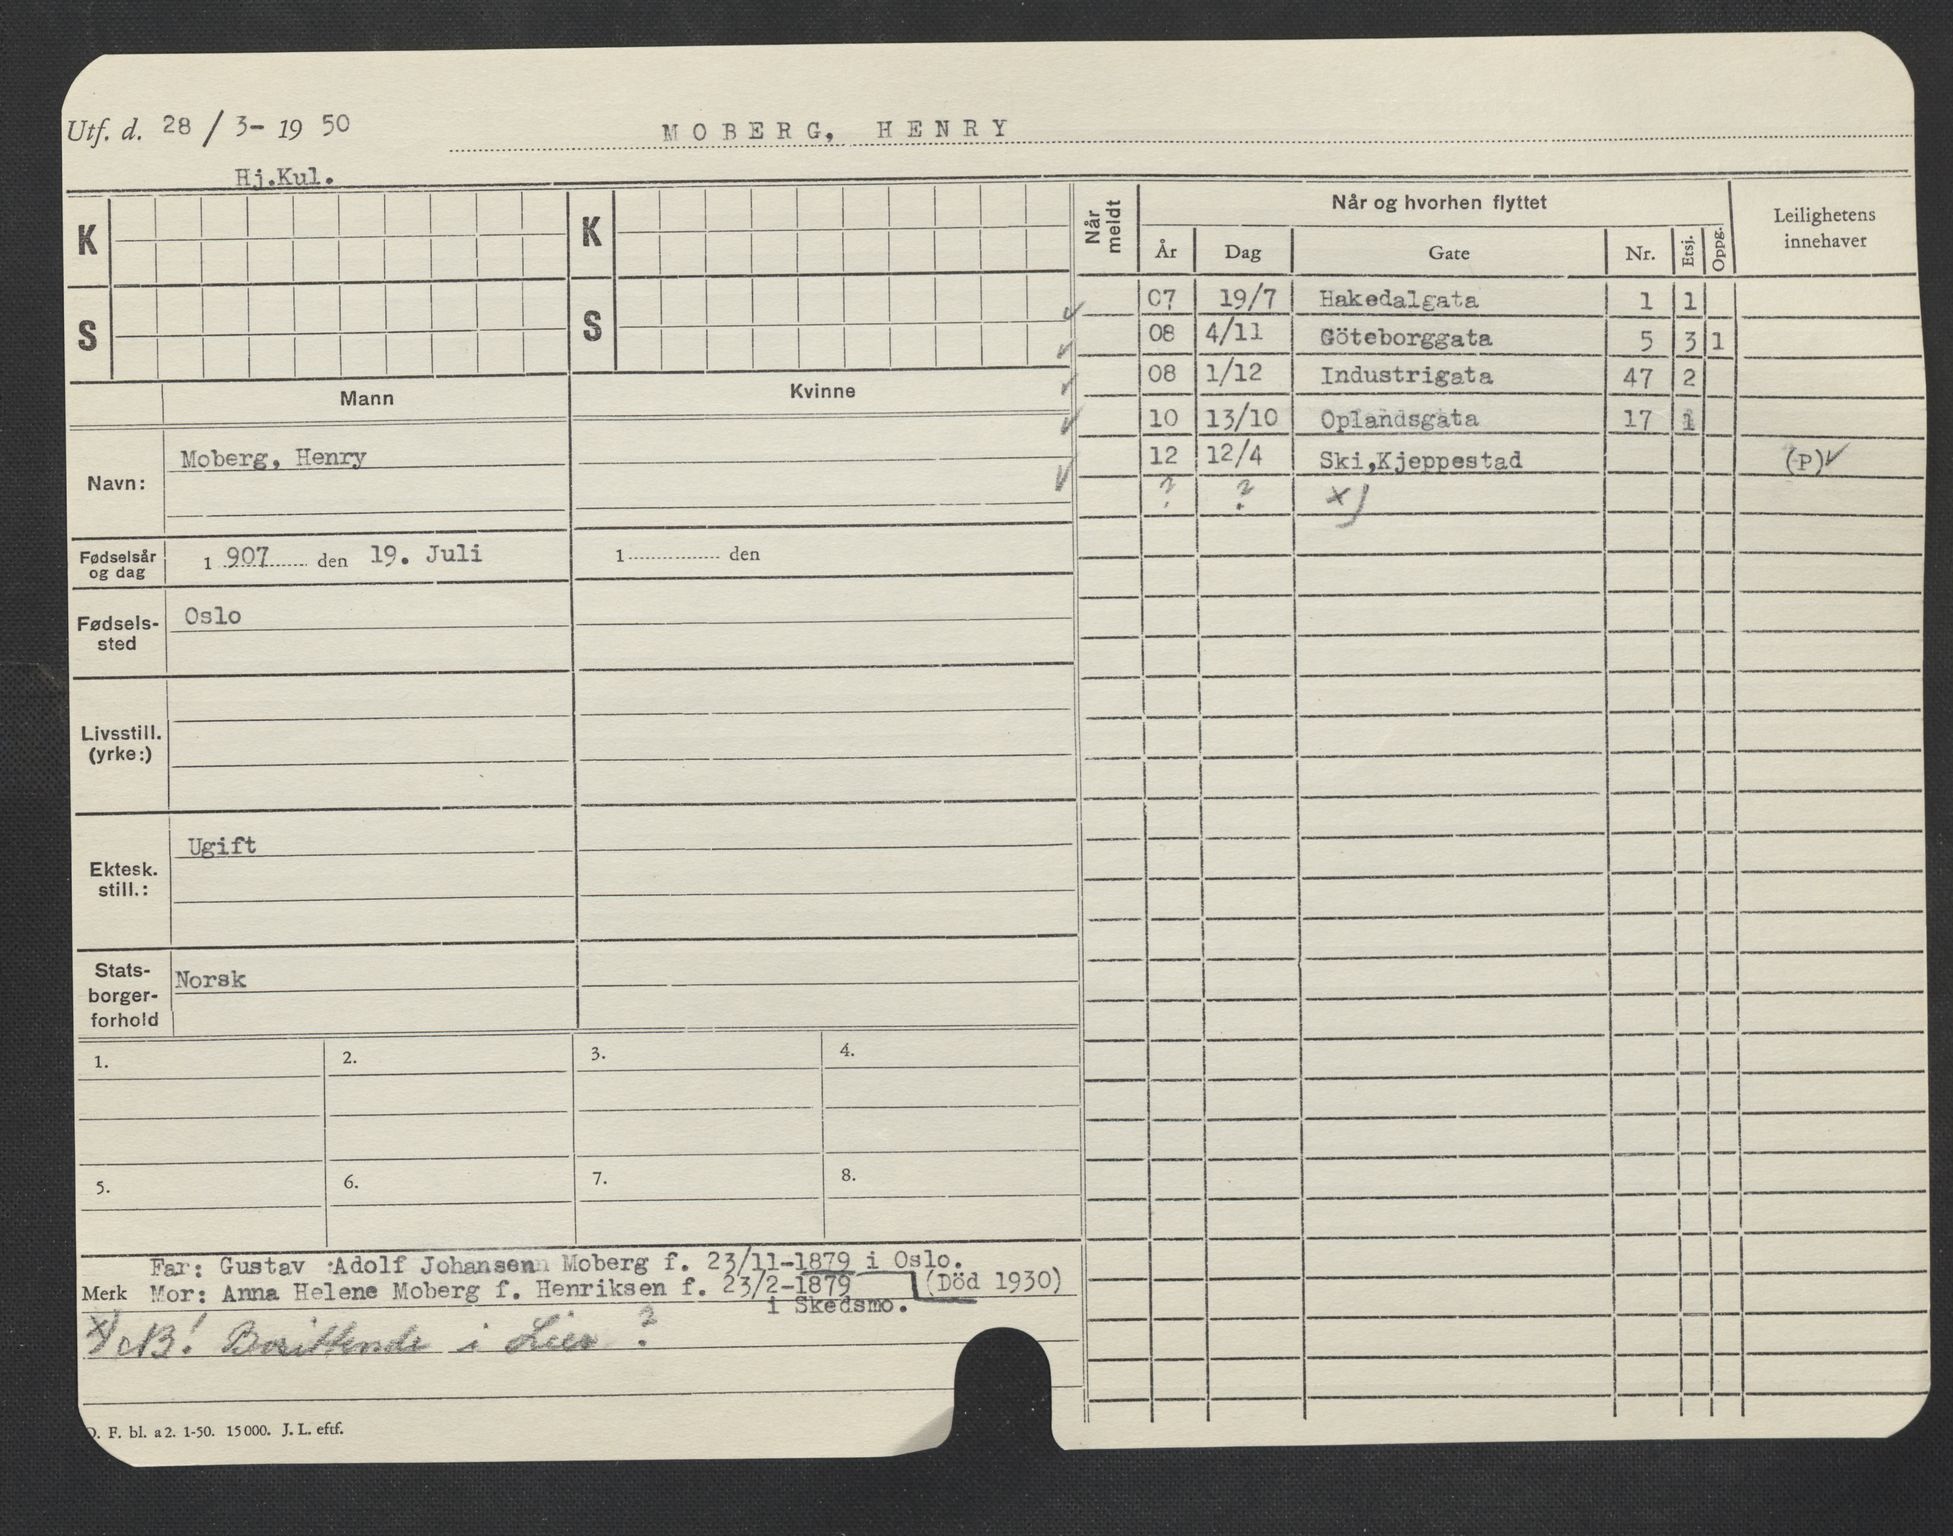 Utf. d. 28 / 3- 19 50
MOBERG, HENRY
Hj.Kul.
K
K
S
S
Mann
Kvinne
Navn:
Moberg, Henry
Fødselsår og dag
1 907 den 19. Juli
1 den
Fødsels-sted
Oslo
Livsstill. (yrke:)
Ektesk. still.:
Ugift
Stats-borger-forhold
Norsk
1.
2.
3.
4.
5.
6.
7.
8.
Far: Gustav Adolf Johansen Moberg f. 23/11-1879 i Oslo.
Merk Mor: Anna Helene Moberg f. Henriksen f. 23/2-1879 (Död 1930)
i Skedsmo.
x) NB! Bosittende i Lier ?
D. F. bl. a 2. 1-50. 15 000. J. L. eftf.
Når meldt
Når og hvorhen flyttet
Leilighetens innehaver
År Dag Gate Nr. Etsj. Oppg.
07 19/7 Hakedalgata 1 1
08 4/11 Göteborggata 5 3 1
08 1/12 Industrigata 47 2
10 13/10 Oplandsgata 17 1
12 12/4 Ski,Kjeppestad (P)
? ? x)